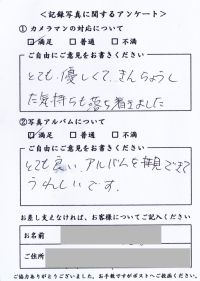 ＜記録写真に関するアンケート＞
① カメラマンの対応について
満足 普通 不満
ご自由にご意見をお書きください
とても優しくて、きんちょうし
た気持ちも落ち着きました
②写真アルバムについて
満足 普通 不満
ご自由にご意見をお書きください
とても良い、アルバムを
うれしいです。
お差し支えなければ、お客様についてご記入ください
お名前
ご住所
ご協力ありがとうございました。お手数ですがポストへご投函ください。